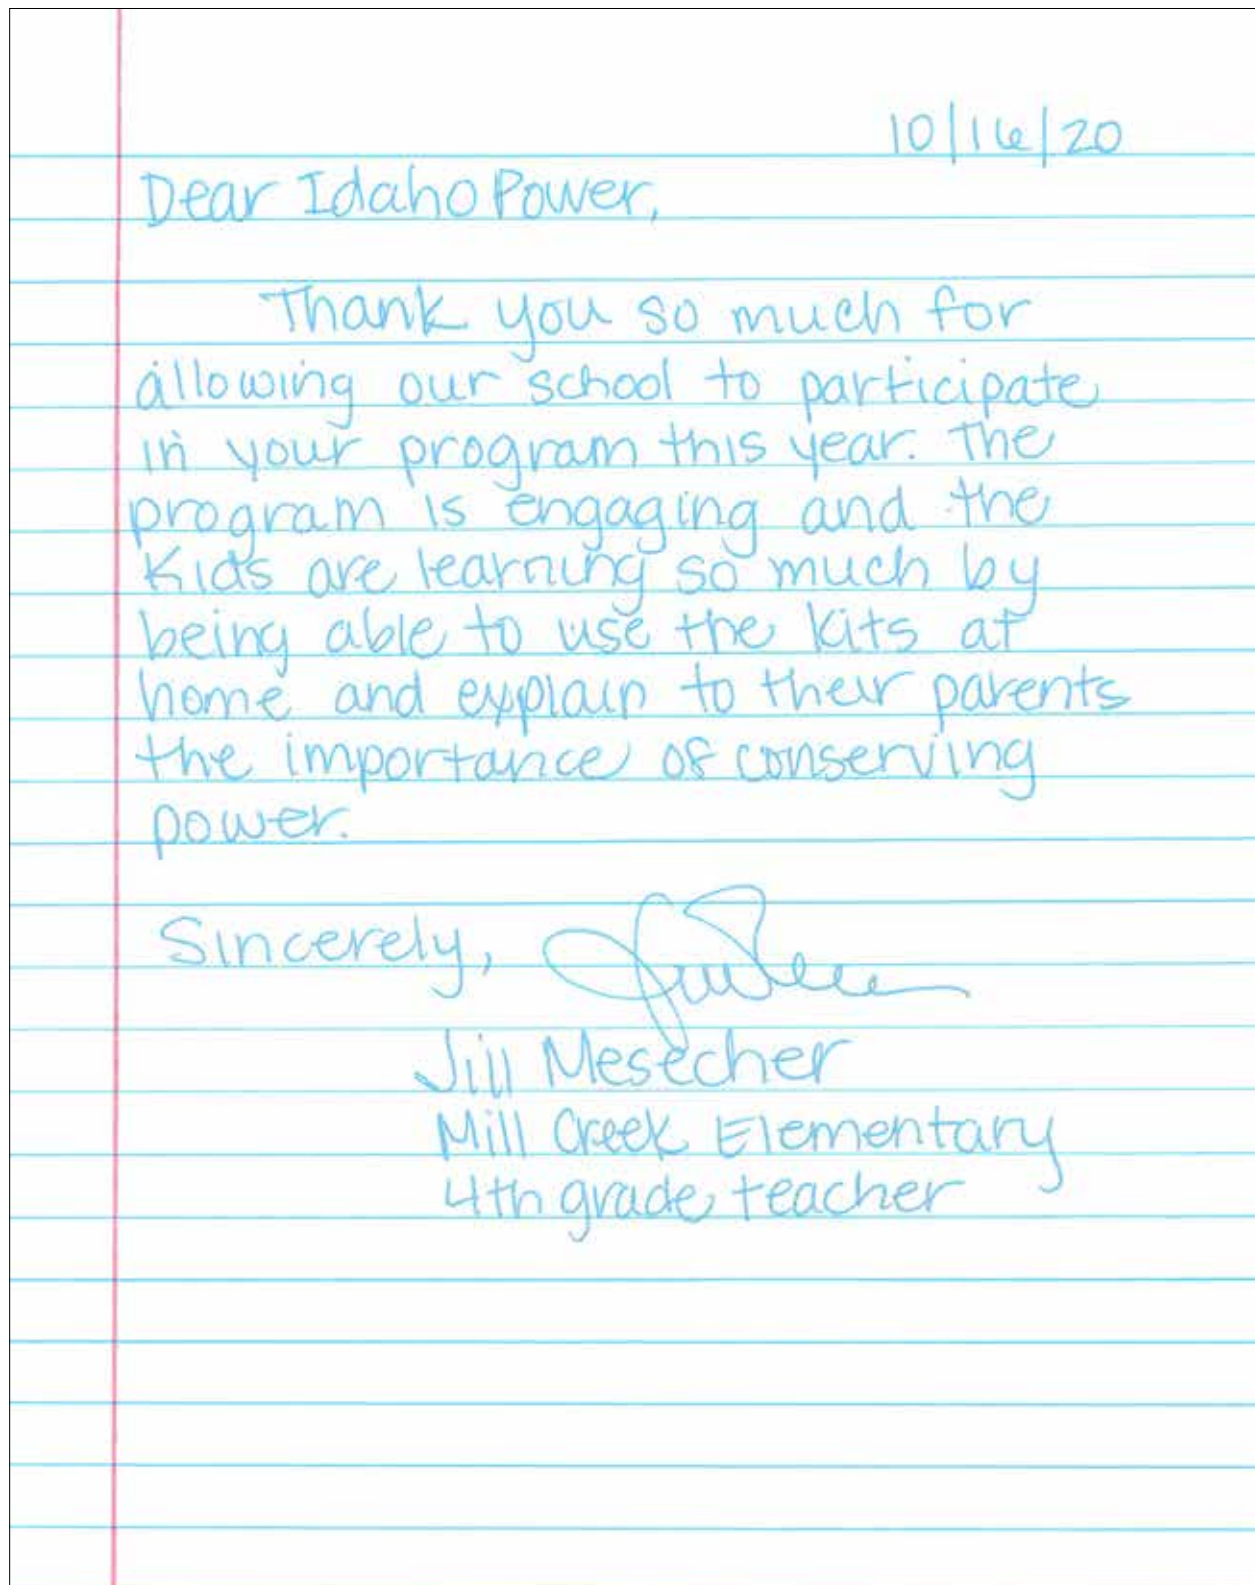 10/16/20
Dear Idaho Power,
Thank you so much for
allowing our school to participate
in your program this year. The
program is engaging and the
Kids are learning so much by
being able to use the kits at
home and explain to their parents
the importance of conserving
power.
Sincerely,
Jill Mesecher
Mill Creek Elementary
4th grade teacher